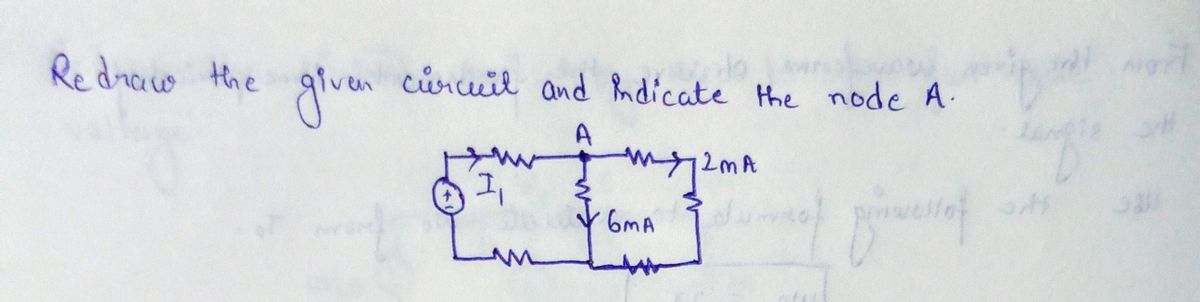 Redraw the given circuit and indicate the node A.
A
2mA
I₁
6mA